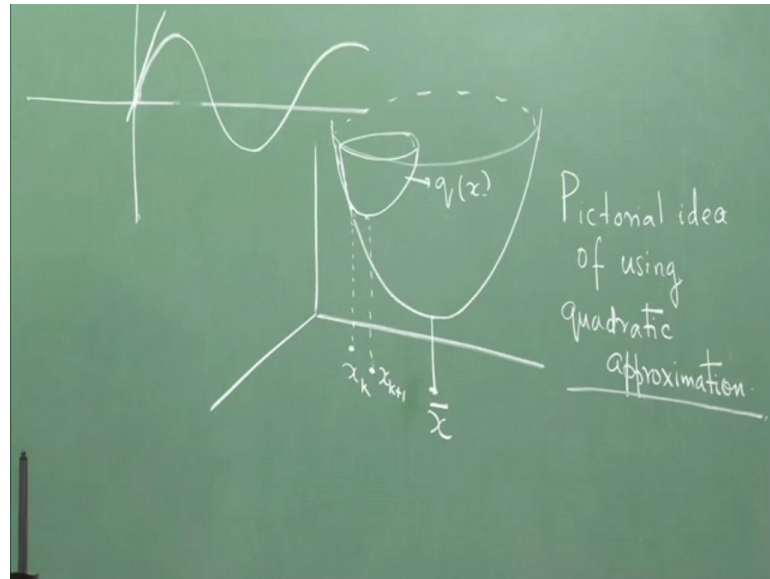 q(x)
Pictorial idea
of using
quadratic
approximation
x_k
x_{k+1}
x̄